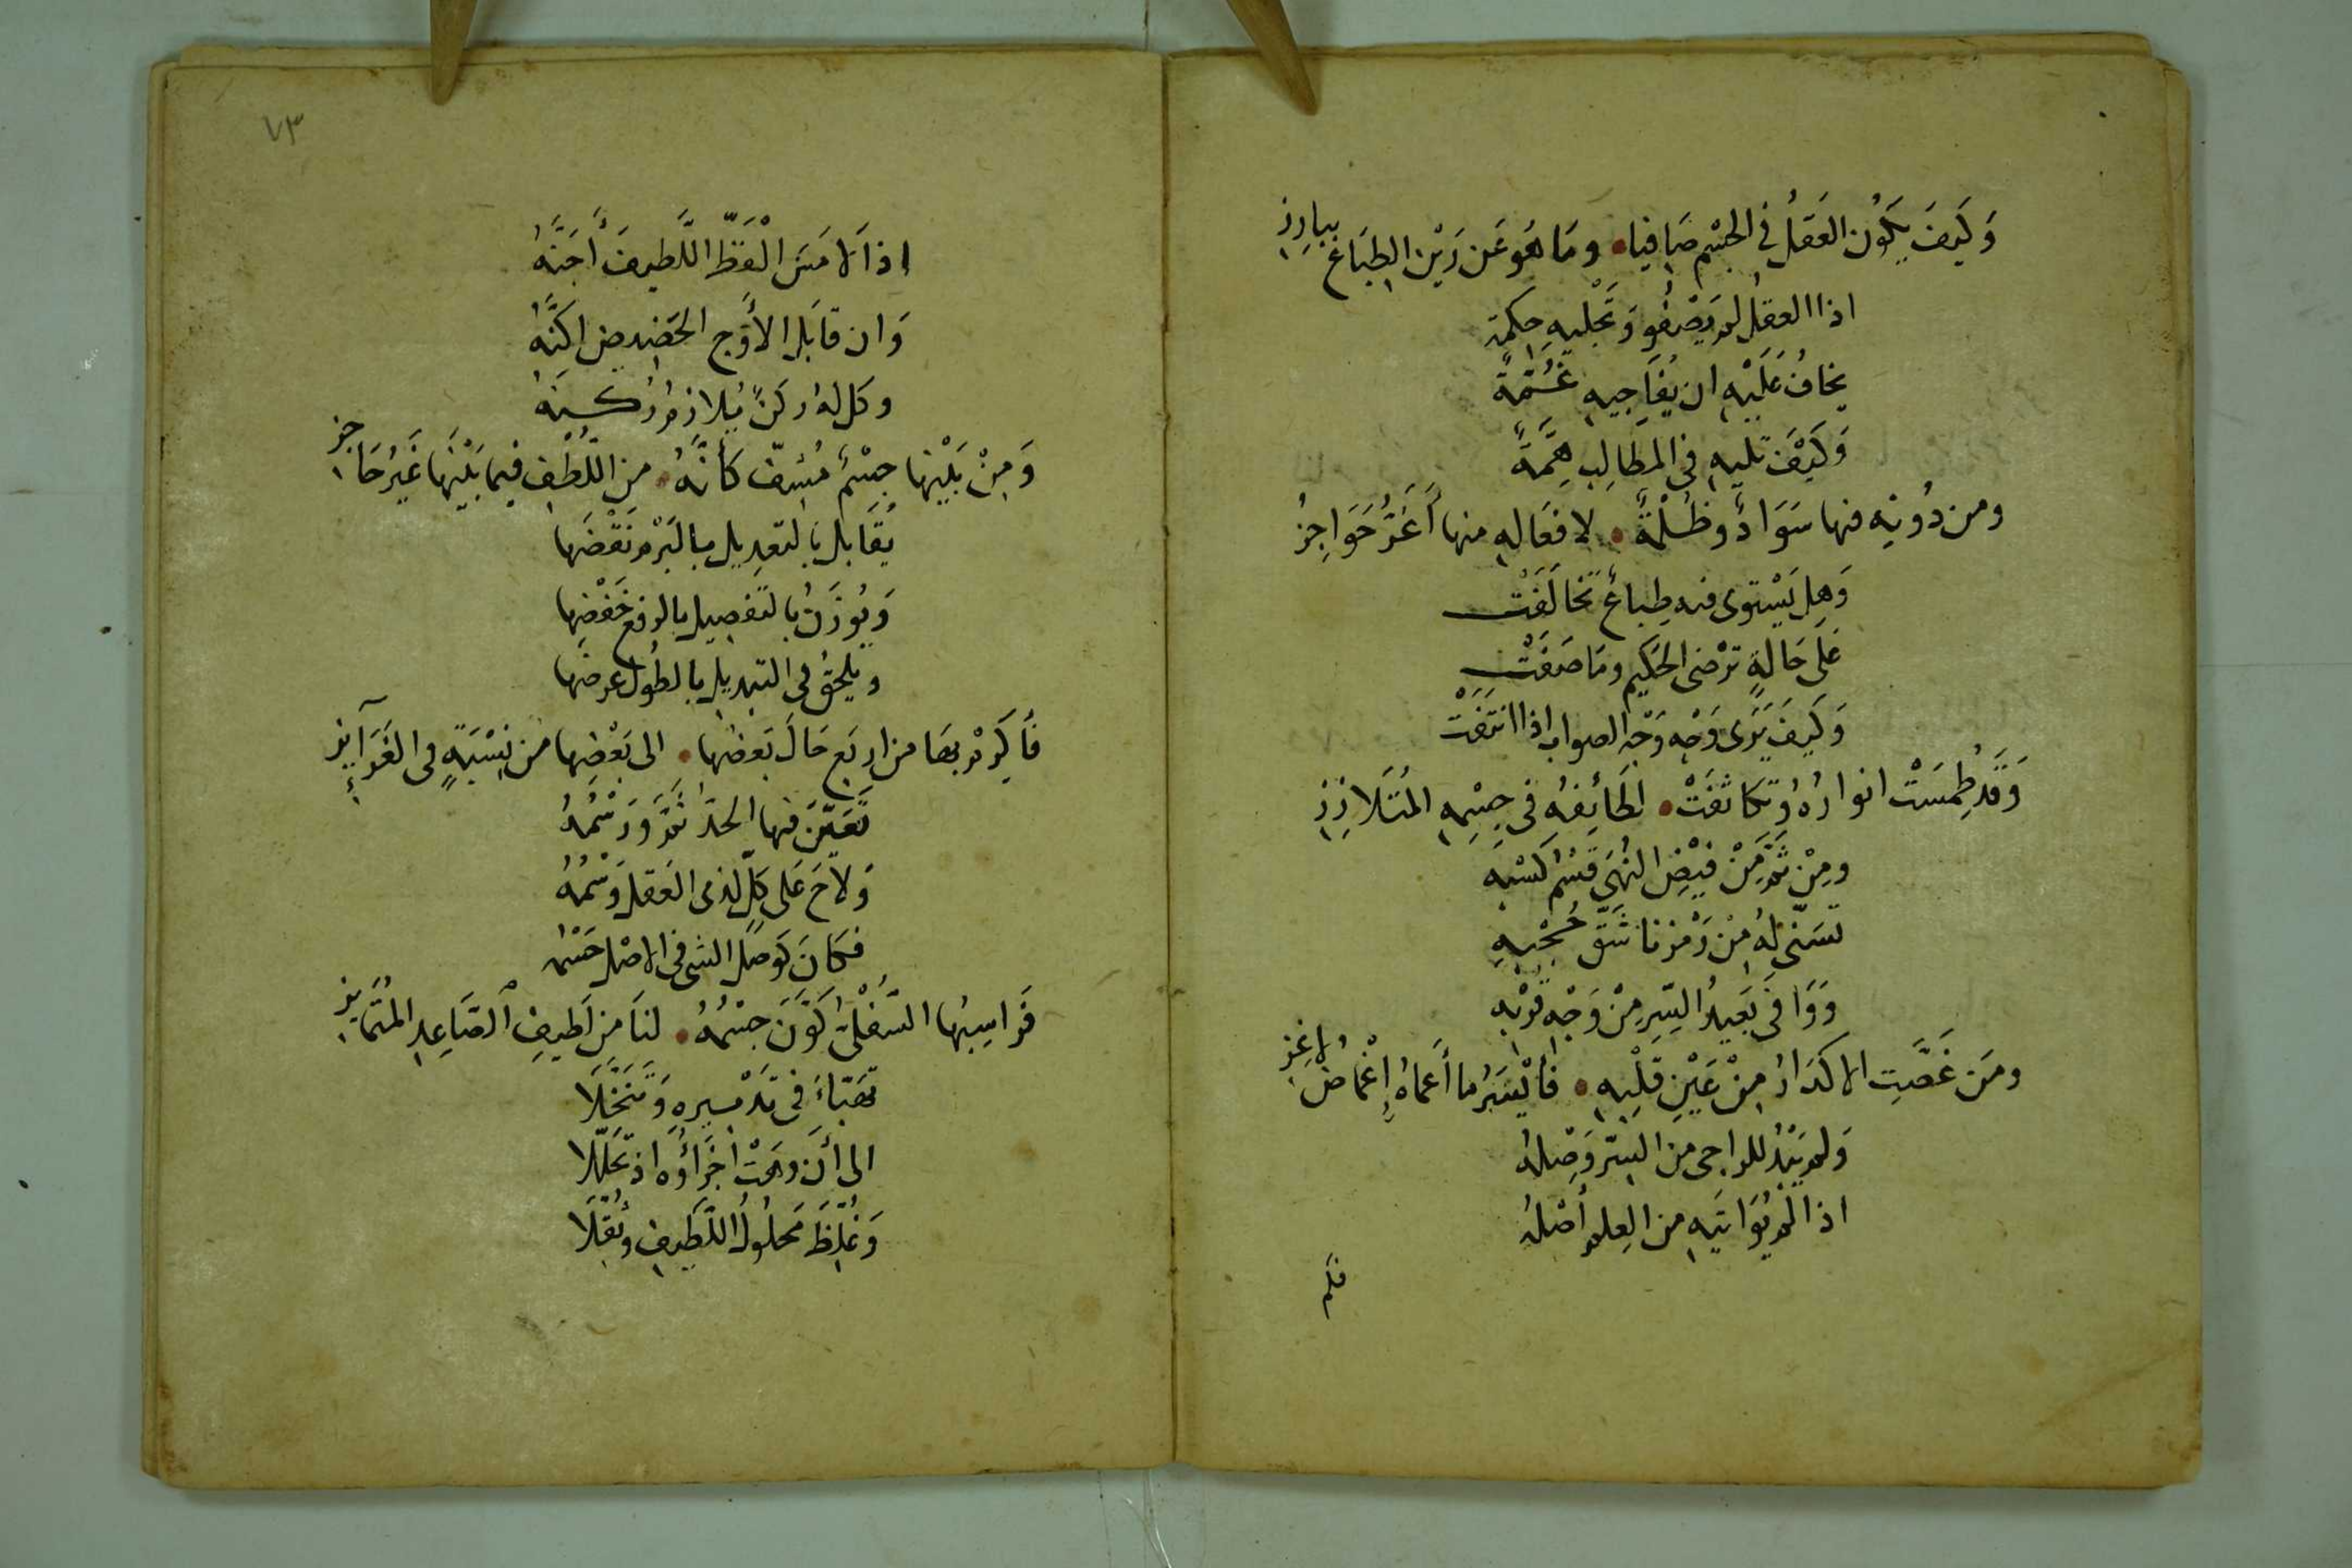 وَكَيفَ يَكُون العَقلُ في الجسْم صَافيا • ومَا هُوَ عَن رَيْن الطِبَاع ببارِزِ
اذا العقلُ لم يَصْفُو وَتَجْليهِ حِكمَة
يخافُ عَلَيْهِ ان يُفَاجيهِ غُمَّةً
وَكَيْفَ تليهِ في المطَالِب هِمَّةً
ومن دُونِه منها سَوَادٌ وظُلْمَةٌ • لافعَالهِ منها أَعَزُّ حَوَاجِزُ
وَهل يَسْتوى فيه طِباعٌ تخَالَفَت
عَلى حَالةٍ تَرْضى الحَكيم ومَا صَفَتْ
وَكَيفَ يَرَى وَجه وَجْه الصواب اذا انتَفَتْ
وَقَد طُمِسَتْ انوارُهُ وتكاثفَتْ • لطَائِفهُ في جِسْمِهِ المُتَلازِزِ
ومِنْ ثَمَّ مَنْ فَيْضِ النُهَى قَسْمُ كَسْبِهِ
تَسَنّى لهُ مِنْ رَمْزنا شَقّ حُجْبِهِ
وَوَافى بَعَيدُ السِّرِ مِنْ وَجْهِ قُرْبِهِ
ومَن غَضَّتِ الاكدَارُ مِنْ عَيْنِ قَلْبِهِ • فأيْسَرُ ما أَعماهُ إغْمَاضُ لاغِزِ
وَلم يَبْدُ للراجى من السِّر وَصْلهُ
اذا لم يُوَاتيهِ من العِلم أصْلهُ
فلم
٧٣
اذا لامَسَ الفَظّ اللَّطيفَ أجَنَّهُ
وَان قابَل الأَوْج الحَضيض اكَنَّهُ
وكل لهُ ركنٌ يُلازمُ رُكنَهُ
وَمِنْ بَيْنِها جِسْمٌ مُشِفّ كأنّهُ • من اللُّطْفِ فيما بَيْنَها غَيْرُ حَاجِزِ
يُقَابل بالتعدِيل بالبَرْم نَقْضَها
وَيُوزَنُ بالتفصِيل بالرفع خَفْضِها
ويلحَقُ في التبديل بالطُول عرضَها
فأكرِمْ بهَا من اربَع حَالَ بَعضُها • الى بَعْضِها من نِسْبَةٍ في الغَرَآئِزِ
تَعَيّنَ فيها الحَدّ ثَمَّ وَرَسْمُهُ
وَلاحَ عَلى كلّ لذى العَقل وَسْمُهُ
فكَانَ كَوَصل الشى فى الاصْل حَسْمُه
فَرَاسِبُها السُّفْلىّ كَوَّنَ جِسْمُهُ • لنَا مَن لَطيفِ الصَّاعِدِ المُتَمَايِزِ
تَهَبّاءَ فى تدْميرهِ وَتَنَخَّلَا
الى أن وهَتْ اجزَاؤه اذ تَحَلّلَا
وَغُلّظَ مَحلُولُ اللّطيفِ وثُقِّلَا